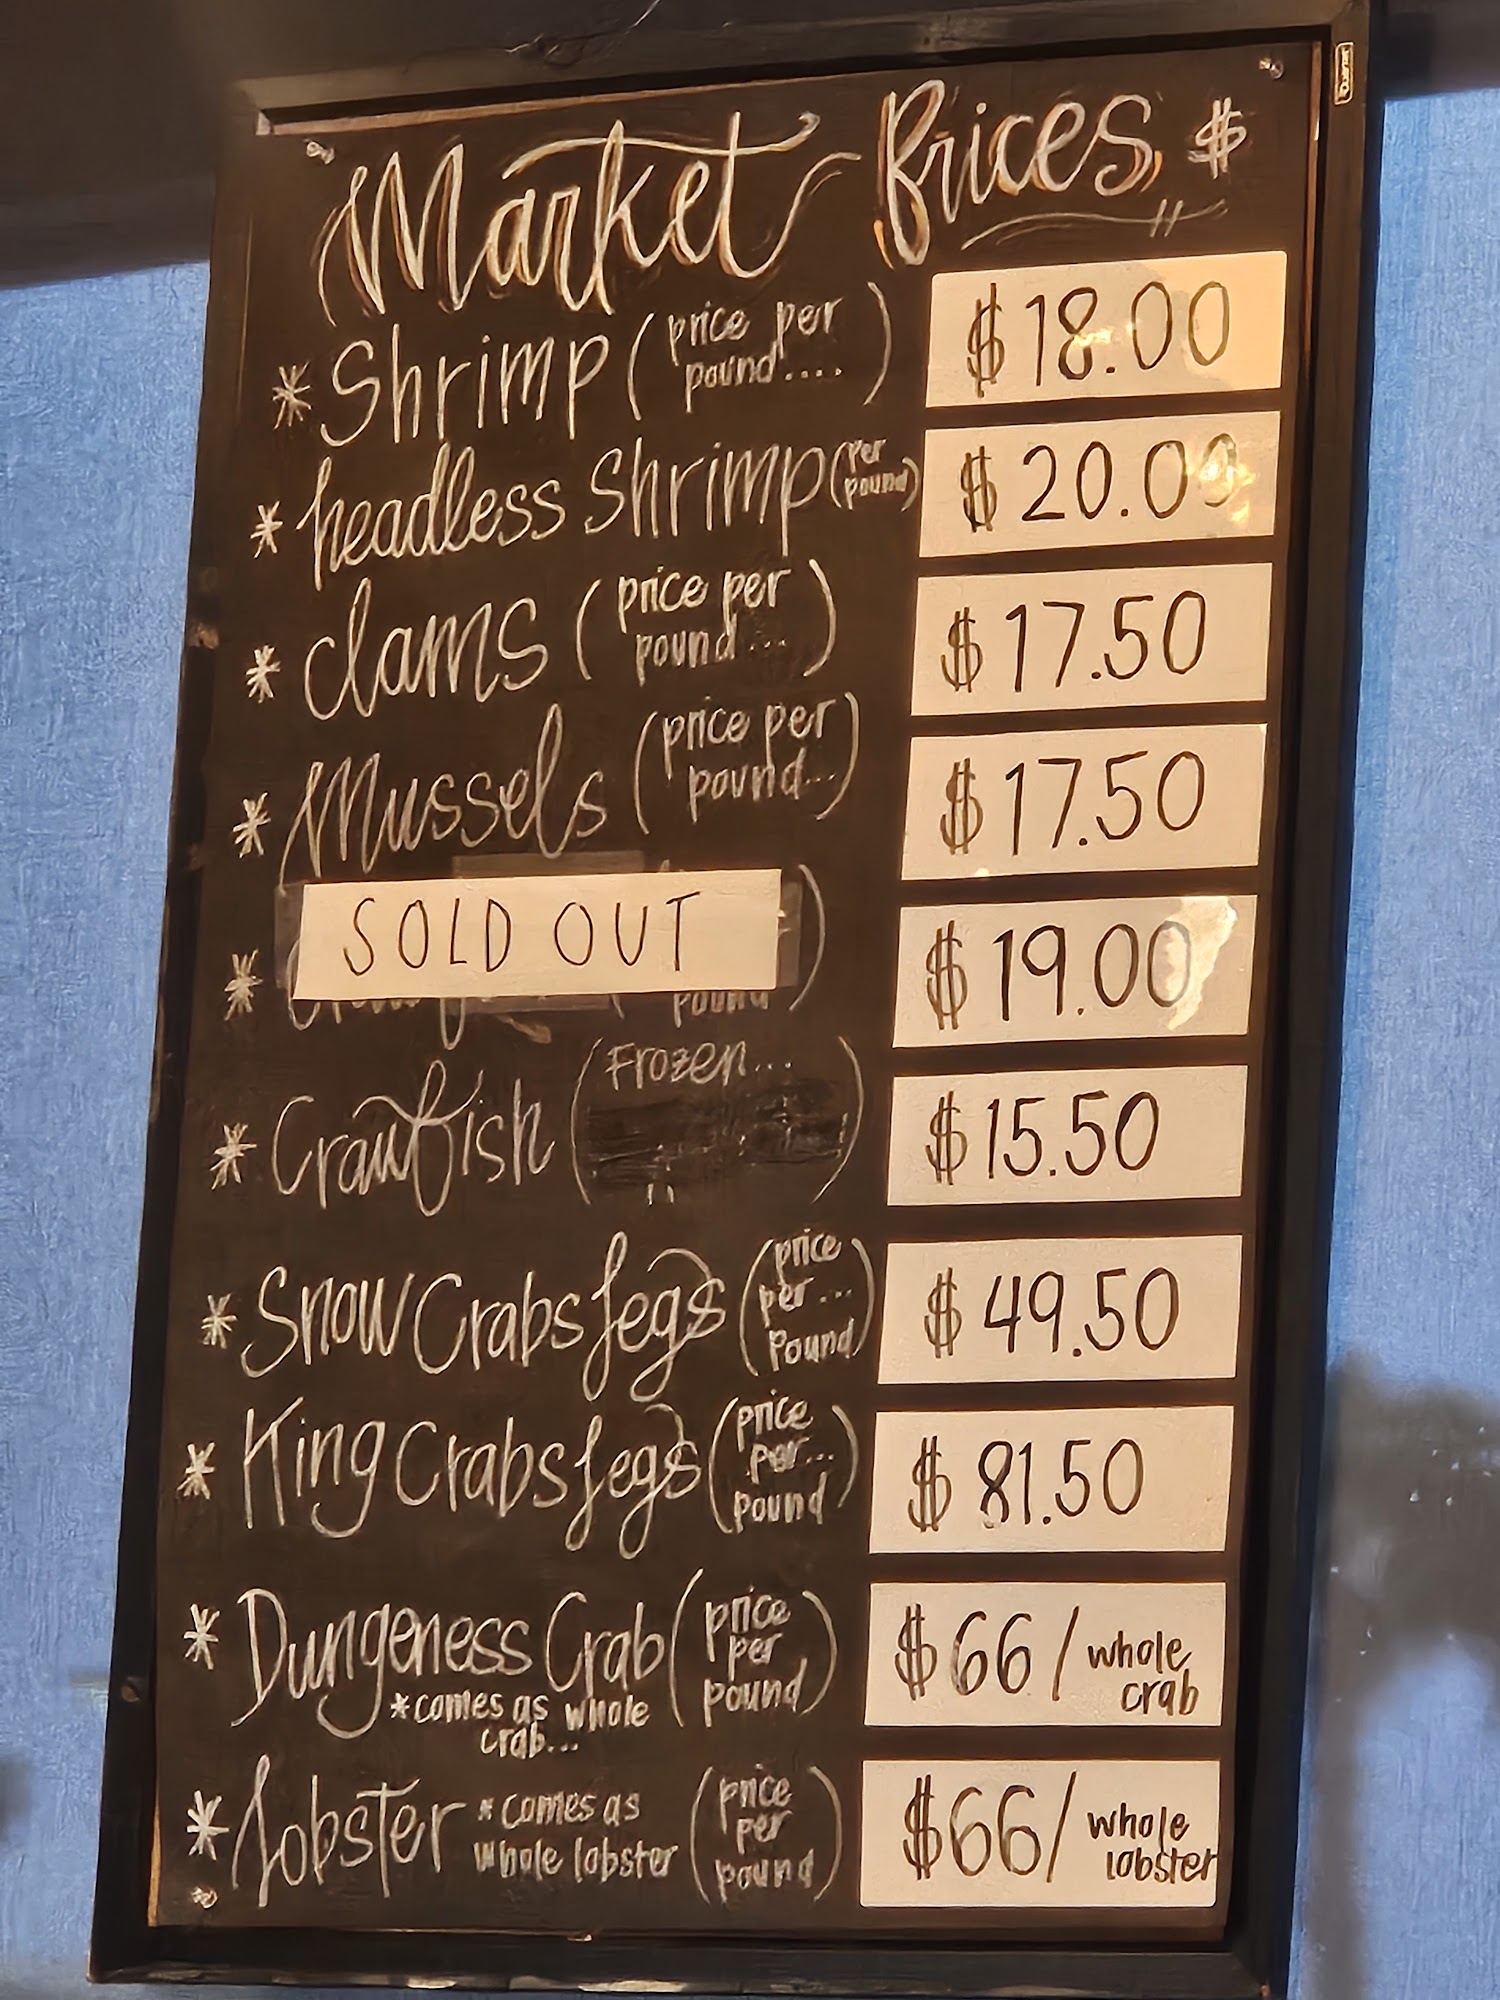 Market Prices $
* Shrimp (price per pound....) $18.00
* headless shrimp (per pound) $20.00
* clams (price per pound...) $17.50
* Mussels (price per pound...) $17.50
* SOLD OUT pound) $19.00
* Crawfish (Frozen...) $15.50
* Snow Crabs Legs (price per... Pound) $49.50
* King Crabs Legs (price per... pound) $81.50
* Dungeness Crab (price per pound) $66/whole crab
*comes as whole crab...
* Lobster *comes as whole lobster (price per pound) $66/whole lobster